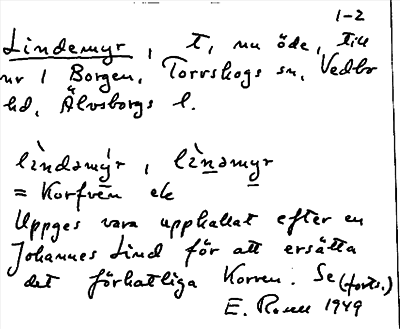 1-2
Lindemyr, t, nu öde, till
nr 1 Borgen, Torrskogs sn, Vedbo
hd, Älvsborgs l.
lìndamýr, lìnamyr
= Korfven ek
Uppges vara uppkallat efter en
Johannes Lind för att ersätta
det förhatliga Korven. Se (forts.)
E. Rosen 1949